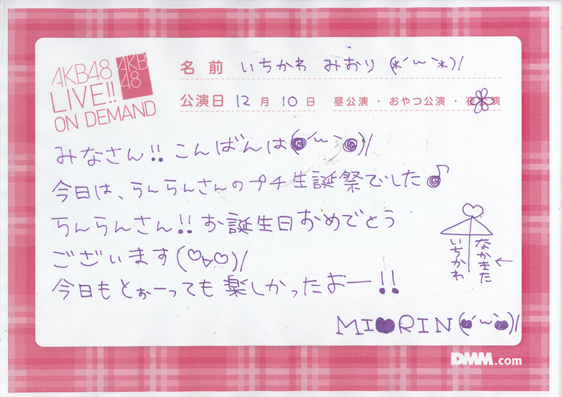 AKB48
LIVE!!
ON DEMAND
AKB
48
名前 いちかわ みおり (*´ω`*)/
公演日 12月10日 昼公演・おやつ公演・夜公演
みなさん!! こんばんは(●´ω`●)/
今日は、らんらんさんのプチ生誕祭でした♪
らんらんさん!! お誕生日おめでとう
ございます(♡∀♡)/
今日もとぉーっても楽しかったぉー!!
なかまた←
いちかわ
MI♥RIN(●´ω`●)/
DMM.com